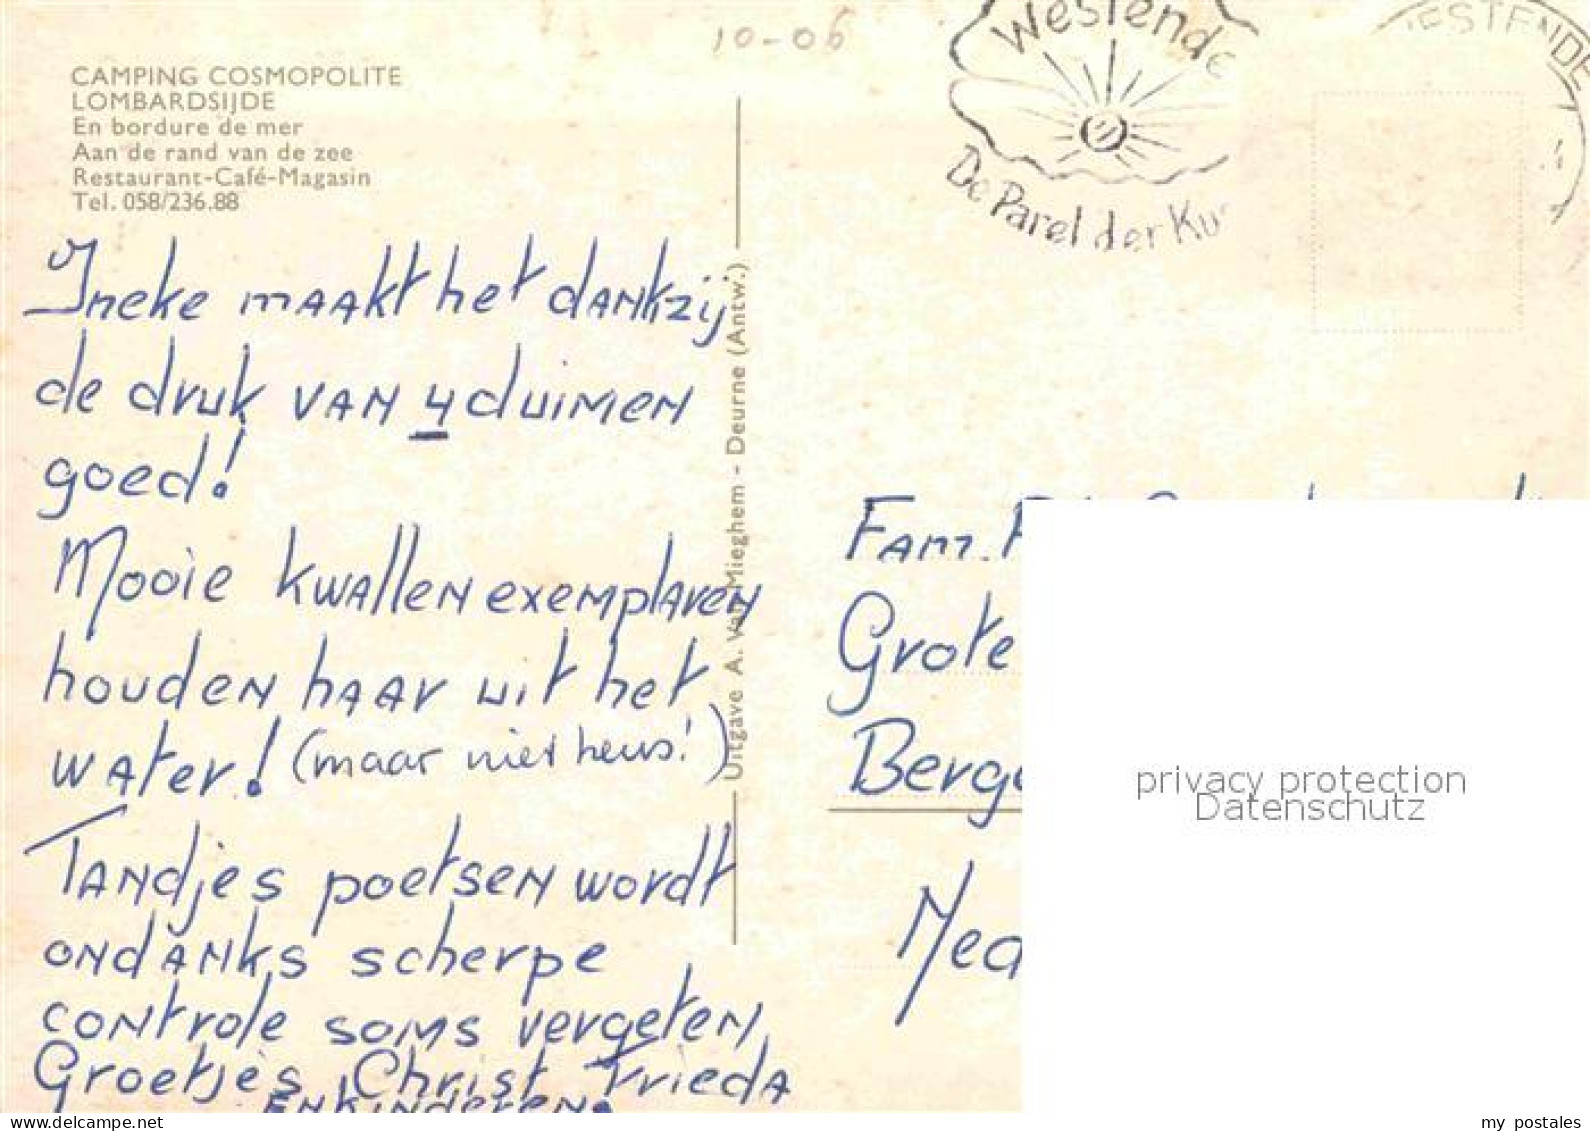 10-06
CAMPING COSMOPOLITE
LOMBARDSIJDE
En bordure de mer
Aan de rand van de zee
Restaurant-Café-Magasin
Tel. 058/236.88
Westende
De Parel der Ku
WESTENDE
Ineke maakt het dankzij
de druk van 4 duimen
goed!
Mooie kwallen exemplaren
houden haar uit het
water! (maar niet heus!)
Tandjes poetsen wordt
ondanks scherpe
controle soms vergeten
Groetjes Christ Frieda
en kinderen.
Uitgave A. Van Mieghem - Deurne (Antw.)
Fam.
Grote
Berge
Ned
privacy protection
Datenschutz
my postales
delcampe.net